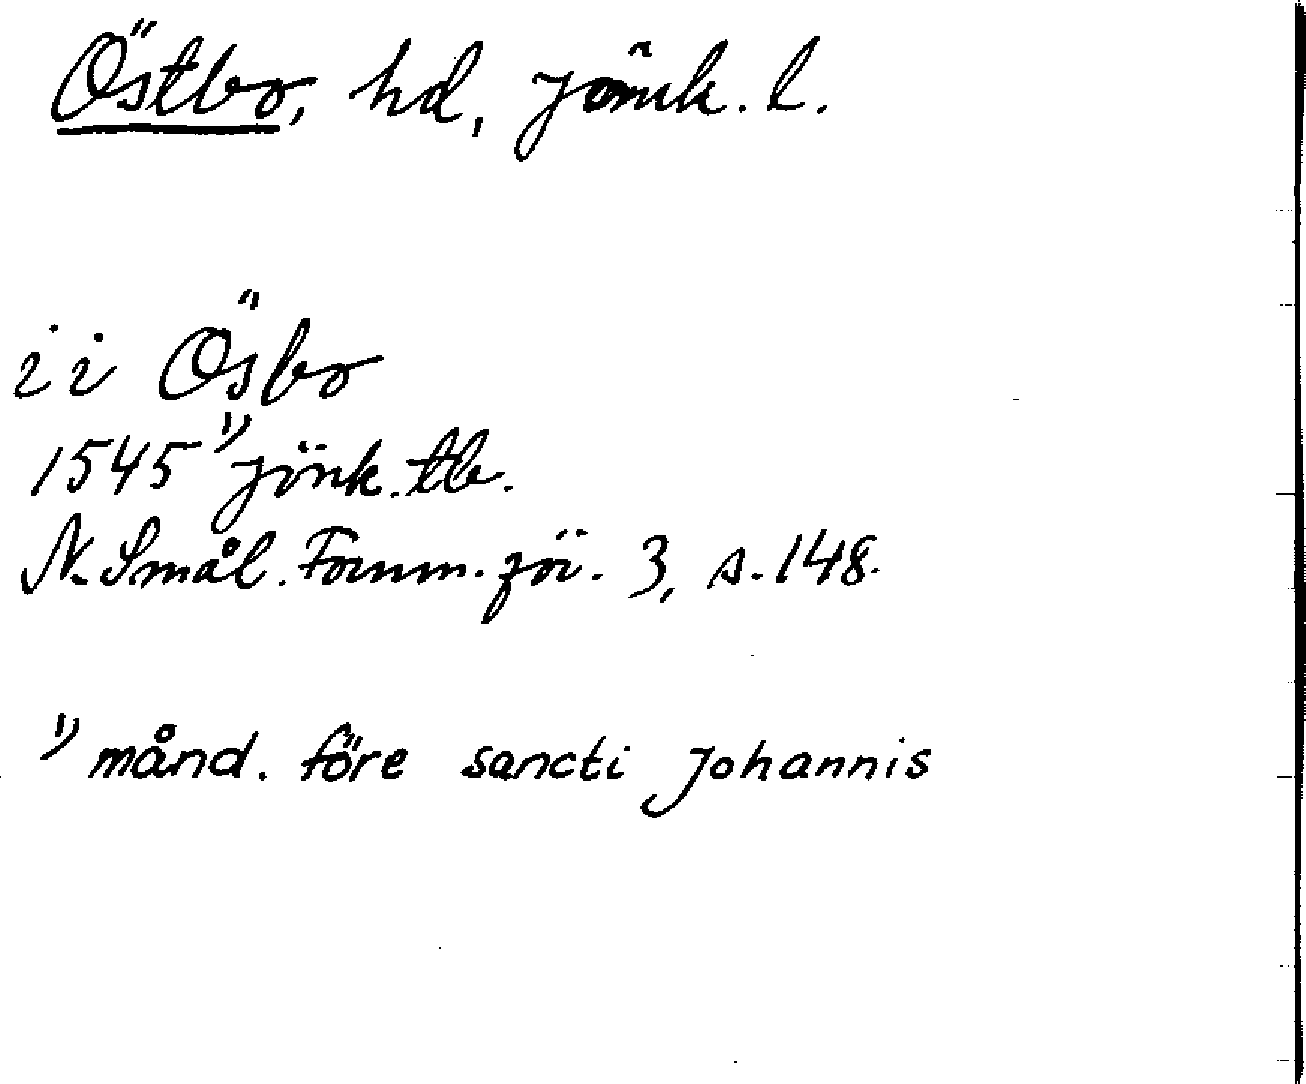 Östbo, hd, Jönk. l.
i i Ösbo
1545 1) Jönk. tb.
N. Smål. Fornm.för. 3, s. 148.
1) månd. före sancti Johannis